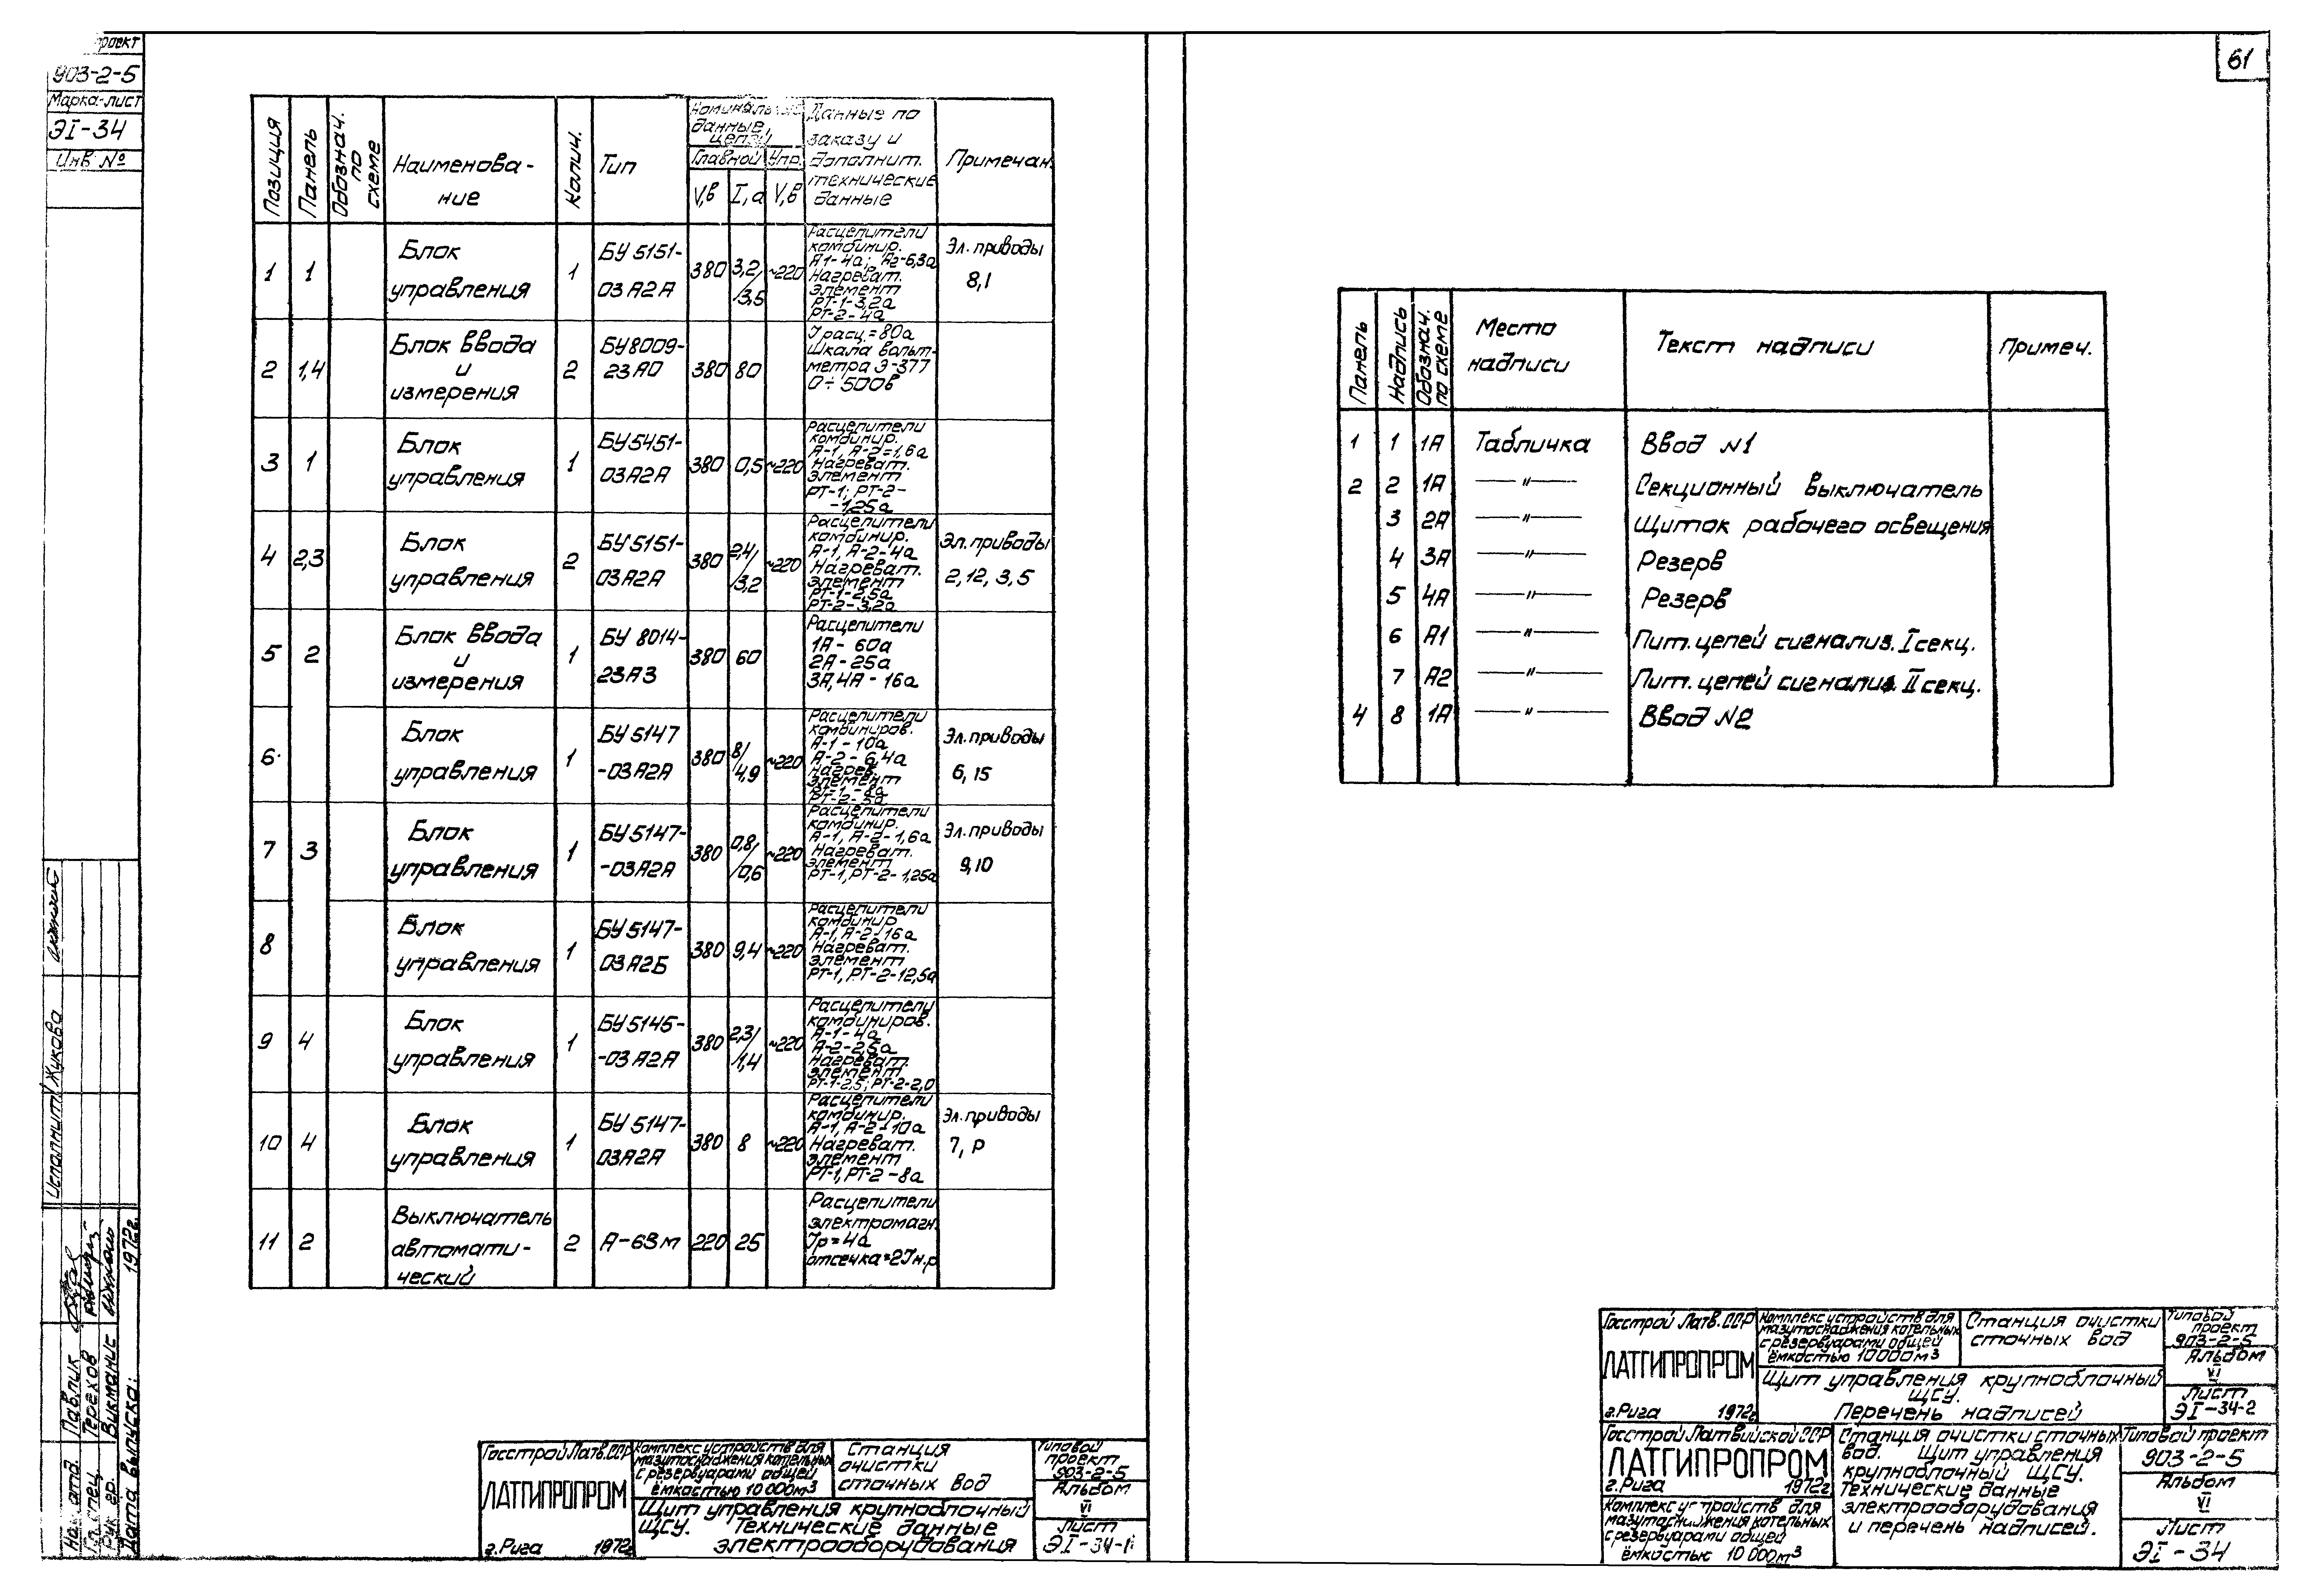 проект
903-2-5
Марка-лист
ЭI-34
Инв №
61
Позиция
Панель
Обознач. по схеме
Наименова-
ние
Колич.
Тип
Номинальные
данные,
цепи
Главной Упр.
V,в I,а V,в
Данные по
заказу и
дополнит.
технические
данные
Примечан.
1 1 Блок управления 1 БУ5151-03А2А 380 3,2/3,5 ~220
Расцепители
комбинир.
А1-4а; А2-6,3а
Нагреват.
элемент
РТ-1-3,2а
РТ-2-4а
Эл. приводы
8,1
2 1,4 Блок ввода и измерения 2 БУ8009-23А0 380 80
Iрасц.=80а
Шкала вольт-
метра Э-377
0÷500в
3 1 Блок управления 1 БУ5451-03А2А 380 0,5 ~220
Расцепители
комбинир.
А-1, А-2=1,6а
Нагреват.
элемент
РТ-1; РТ-2-
-1,25а
4 2,3 Блок управления 2 БУ5151-03А2А 380 2,4/3,2 ~220
Расцепители
комбинир.
А-1, А-2-4а
Нагреват.
элемент
РТ-1-2,5а
РТ-2-3,2а
Эл. приводы
2,12,3,5
5 2 Блок ввода и измерения 1 БУ 8014-23А3 380 60
Расцепители
1А-60а
2А-25а
3А,4А-16а
6 Блок управления 1 БУ5147-03А2А 380 8/4,9 ~220
Расцепители
комбиниров.
А-1-10а
А-2-6,4а
Нагрев.
элемент
РТ-1-8а
РТ-2-5а
Эл. приводы
6,15
7 3 Блок управления 1 БУ5147--03А2А 380 0,8/0,6 ~220
Расцепители
комбинир.
А-1, А-2-1,6а
Нагреват.
элемент
РТ-1,РТ-2-1,25а
Эл. приводы
9,10
8 Блок управления 1 БУ5147-03А2Б 380 9,4 ~220
Расцепители
комбинир
А-1, А-2-16а
Нагреват.
элемент
РТ-1, РТ-2-12,5а
9 4 Блок управления 1 БУ5145--03А2А 380 2,3/1,4 ~220
Расцепители
комбиниров.
А-1-4а
А-2-2,5а
Нагреват.
элемент
РТ-1-2,5; РТ-2-2,0
10 4 Блок управления 1 БУ5147-03А2А 380 8 ~220
Расцепители
комбинир.
А-1, А-2-10а
Нагреват.
элемент
РТ-1, РТ-2-8а
Эл. приводы
7, р
11 2 Выключатель автомати-ческий 2 А-63м 220 25
Расцепители
электромагн.
Iр=4а
отсечка=2Iн.р
Панель
Надпись
Обознач. по схеме
Место
надписи
Текст надписи
Примеч.
1 1 1А Табличка Ввод №1
2 2 1А —"— Секционный выключатель
3 2А —"— Щиток рабочего освещения
4 3А —"— Резерв
5 4А —"— Резерв
6 А1 —"— Пит. цепей сигнализ. I секц.
7 А2 —"— Пит. цепей сигнализ. II секц.
4 8 1А —"— Ввод №2
Исполнит. Жукова
Нач. отд. Павлик
Гл. спец. Терехов
Рук. гр. Викмание
Дата выпуска: 1972г.
Госстрой Латв. ССР
ЛАТГИПРОПРОМ
г. Рига 1972г.
Комплекс устройств для
мазутоснабжения котельных
с резервуарами общей
ёмкостью 10 000м³
Станция
очистки
сточных вод
Щит управления крупноблочный
ЩСУ. Технические данные
электрооборудования
Типовой
проект
903-2-5
Альбом
VI
Лист
ЭI-34-1
Госстрой Латв. ССР
ЛАТГИПРОПРОМ
г. Рига 1972г.
Комплекс устройств для
мазутоснабжения котельных
с резервуарами общей
ёмкостью 10000м³
Станция очистки
сточных вод
Щит управления крупноблочный
ЩСУ.
Перечень надписей
Типовой
проект
903-2-5
Альбом
VI
Лист
ЭI-34-2
Госстрой Латвийской ССР
ЛАТГИПРОПРОМ
г. Рига 1972г.
Комплекс устройств для
мазутоснижения котельных
с резервуарами общей
ёмкостью 10 000м³
Станция очистки сточных
вод. Щит управления
крупноблочный ЩСУ.
Технические данные
электрооборудования
и перечень надписей.
Типовой проект
903-2-5
Альбом
VI
Лист
ЭI-34